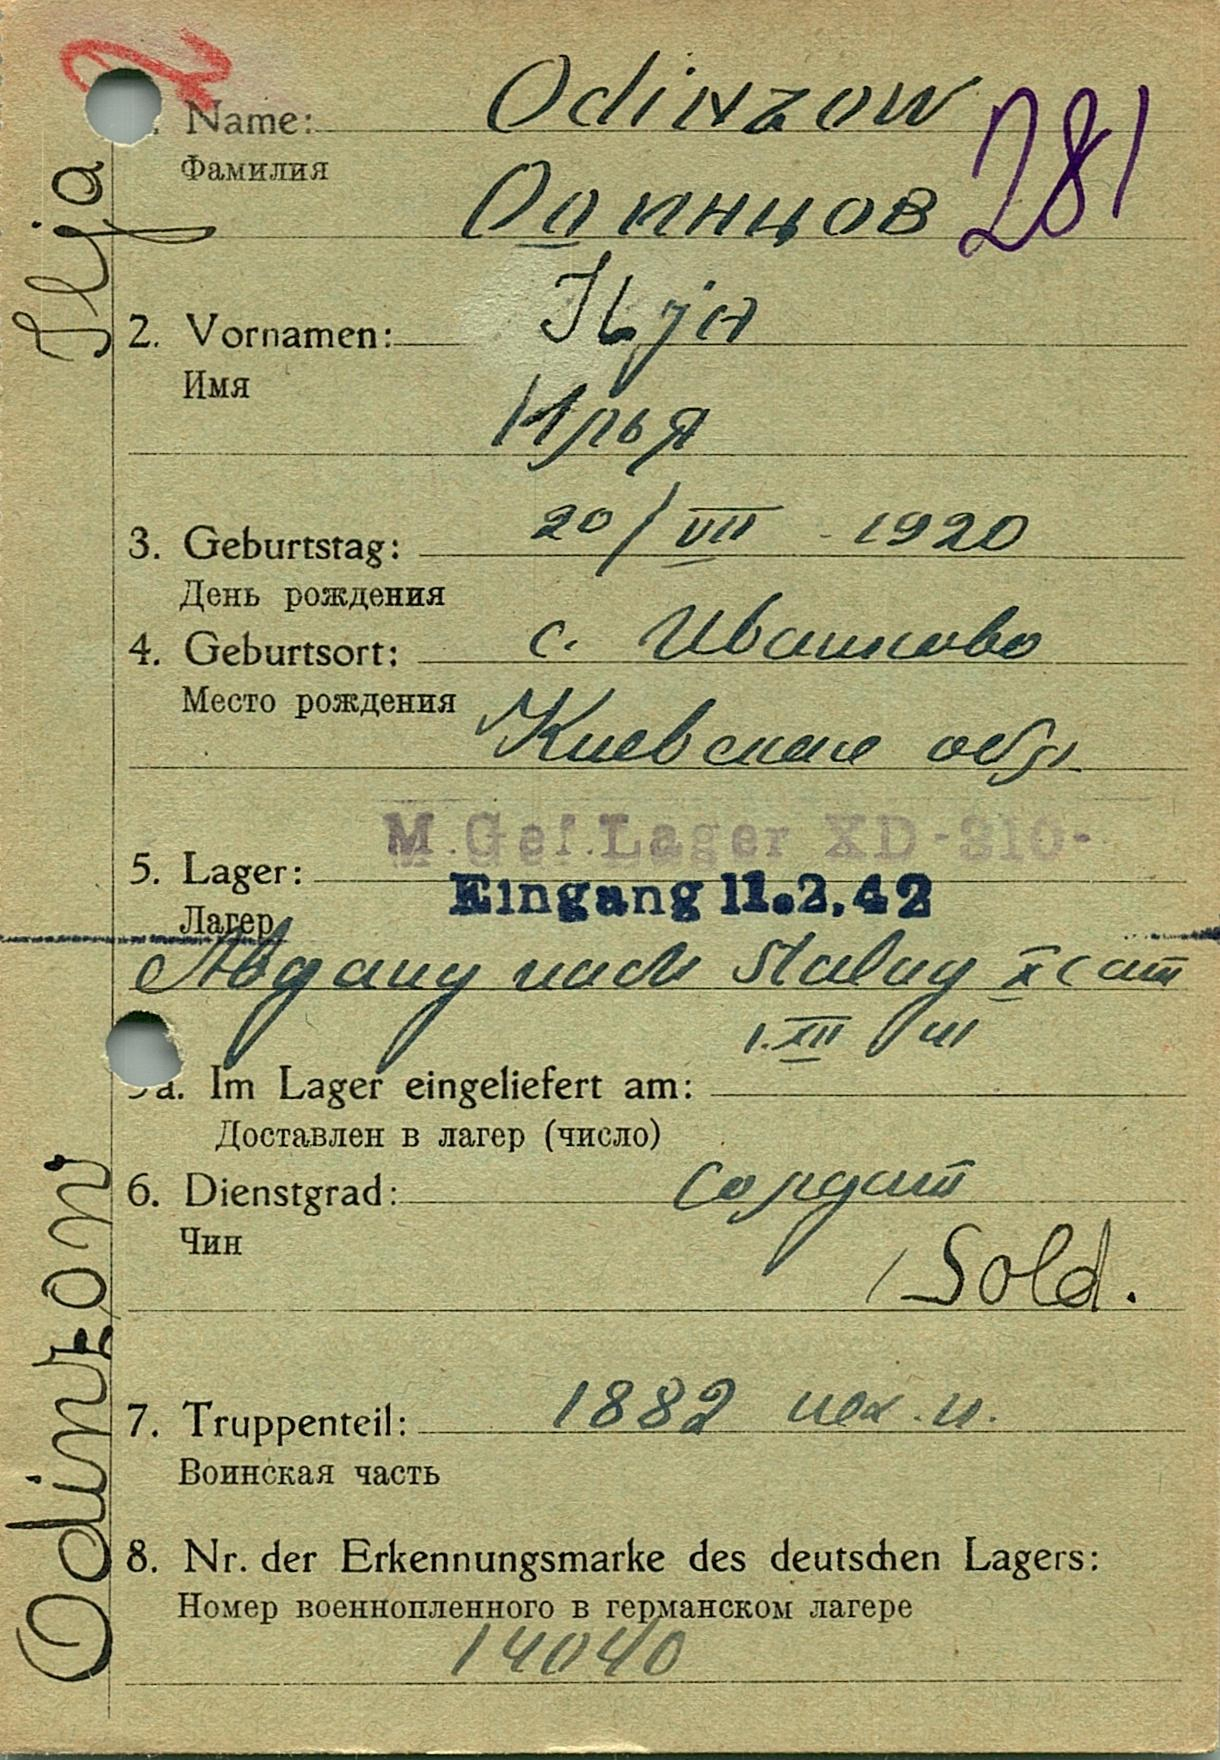 2
Name: Odinzow
Фамилия
Одинцов
281
2. Vornamen: Ilja
Имя
Илья
3. Geburtstag: 20/VII 1920
День рождения
4. Geburtsort: с. Ивашково
Место рождения
Киевская обл.
M.Gef.Lager XD-310-
5. Lager:
Eingang 11.2.42
Лагер
Abgang nach Stalag XC am
1.XII
a. Im Lager eingeliefert am:
Доставлен в лагер (число)
6. Dienstgrad: Солдат
Чин
Sold.
7. Truppenteil: 1882
Воинская часть
8. Nr. der Erkennungsmarke des deutschen Lagers:
Номер военнопленного в германском лагере
14040
Odinzow Ilja